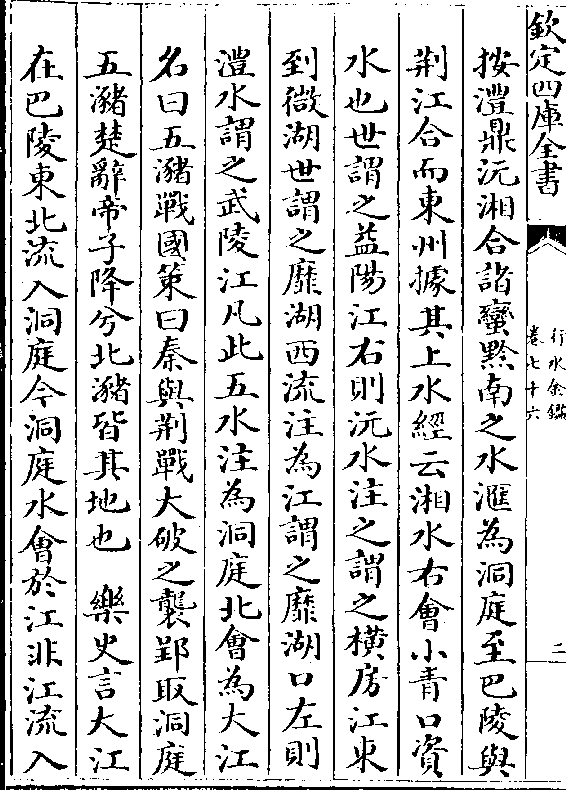 欽定四庫全書
行水金鑑
卷七十六
二
按澧鼎沅湘合諸蠻黔南之水滙為洞庭至巴陵與
荆江合而東州據其上水經云湘水右會小青口資
水也世謂之益陽江右則沅水注之謂之橫房江東
到微湖世謂之麋湖西流注為江謂之麋湖口左則
澧水謂之武陵江凡此五水注為洞庭北會為大江
名曰五瀦戰國策曰秦與荆戰大破之襲郢取洞庭
五瀦楚辭帝子降兮北瀦皆其地也　樂史言大江
在巴陵東北流入洞庭今洞庭水會於江非江流入